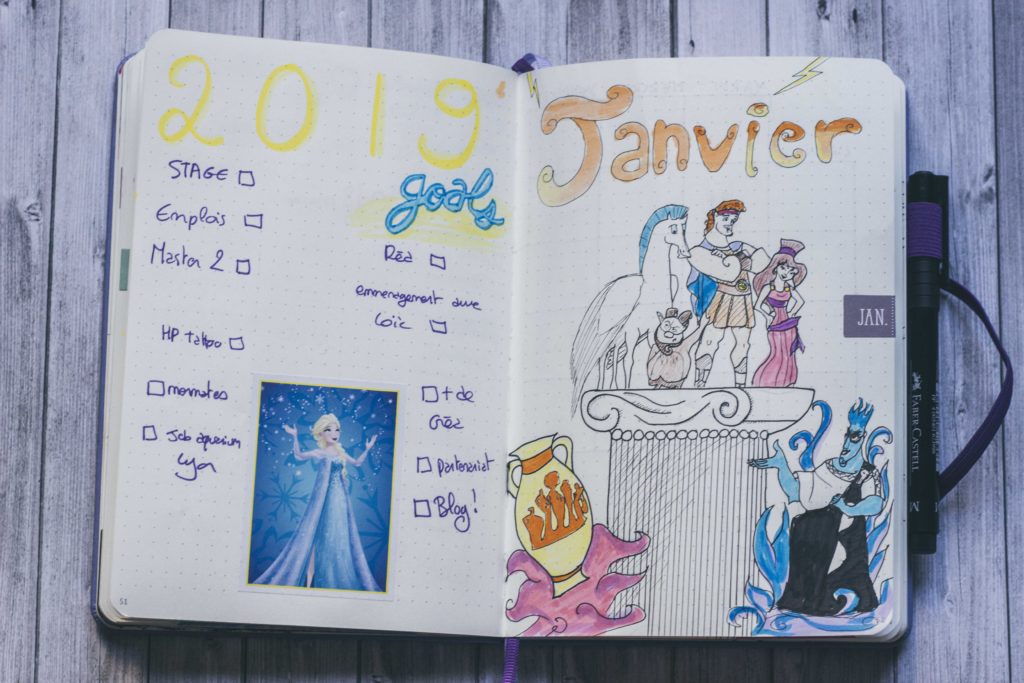 2019
goals
STAGE
Emplois
Master 2
Réa
emmenagement avec
Loïc
HP tattoo
+ de
Créa
Job aquarium
Lyon
partenariat
Blog!
51
Janvier
JAN.
FABER-CASTELL
M